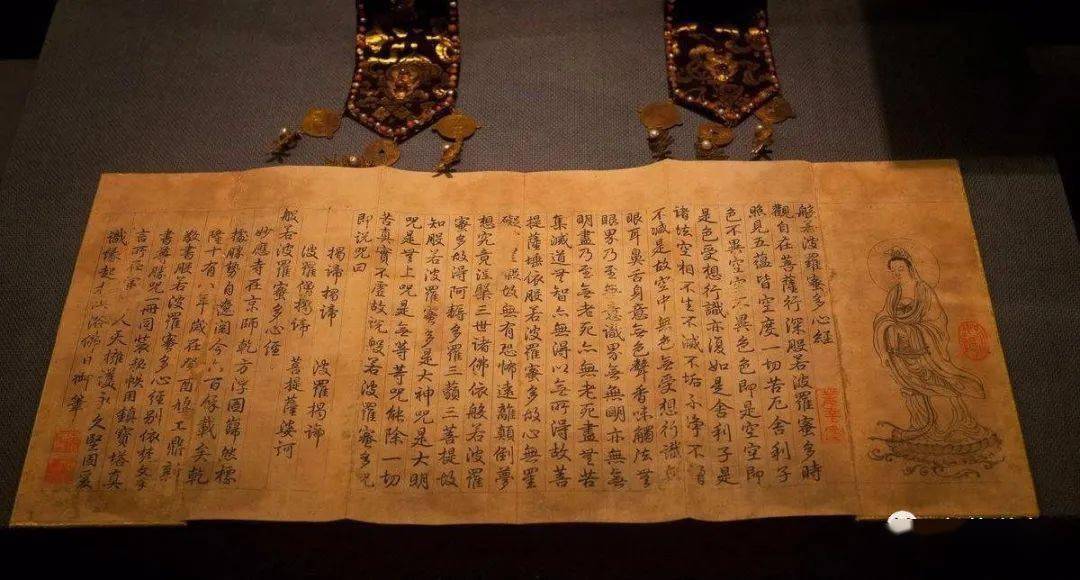 般若波羅蜜多心經
觀自在菩薩行深般若波羅蜜多時
照見五蘊皆空度一切苦厄舍利子
色不異空空不異色色即是空空即
是色受想行識亦復如是舍利子是
諸法空相不生不滅不垢不淨不增
不滅是故空中無色無受想行識
眼耳鼻舌身意無色聲香味觸法無
眼界乃至無意識界無無明亦無無
明盡乃至無老死亦無老死盡無苦
集滅道無智亦無得以無所得故菩
提薩埵依般若波羅蜜多故心無罣
礙故無有恐怖遠離顛倒夢
想究竟涅槃三世諸佛依般若波羅
蜜多故得阿耨多羅三藐三菩提故
知般若波羅蜜多是大神咒是大明
咒是無上咒是無等等咒能除一切
苦真實不虛故說般若波羅蜜多咒
即說咒曰
揭諦揭諦 波羅揭諦
波羅僧揭諦 菩提薩婆訶
般若波羅蜜多心經
妙應寺在京師乾方浮圖巋然標
勝勢自遼閱今六百餘載矣乾
隆十有八年歲在癸酉工鼎新
敬書般若波羅蜜多心經別依梵文
書尊勝咒一冊同裝用鎮寶塔真
言所在人天擁護永久堅固爰
識緣起浴佛日御筆